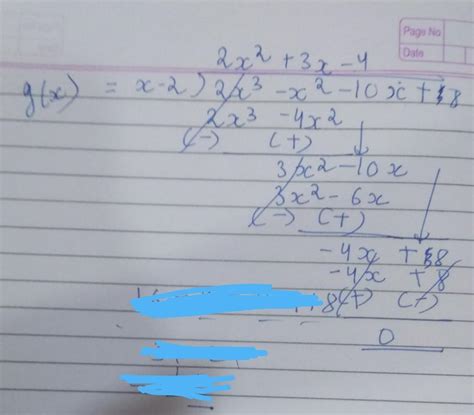 Page No
Date
2x² + 3x - 4
g(x) = x-2) 2x³ - x² - 10x + 8
2x³ - 4x²
(-) (+)
3x² - 10x
3x² - 6x
(-) (+)
-4x + 8
-4x + 8
(+) (-)
0